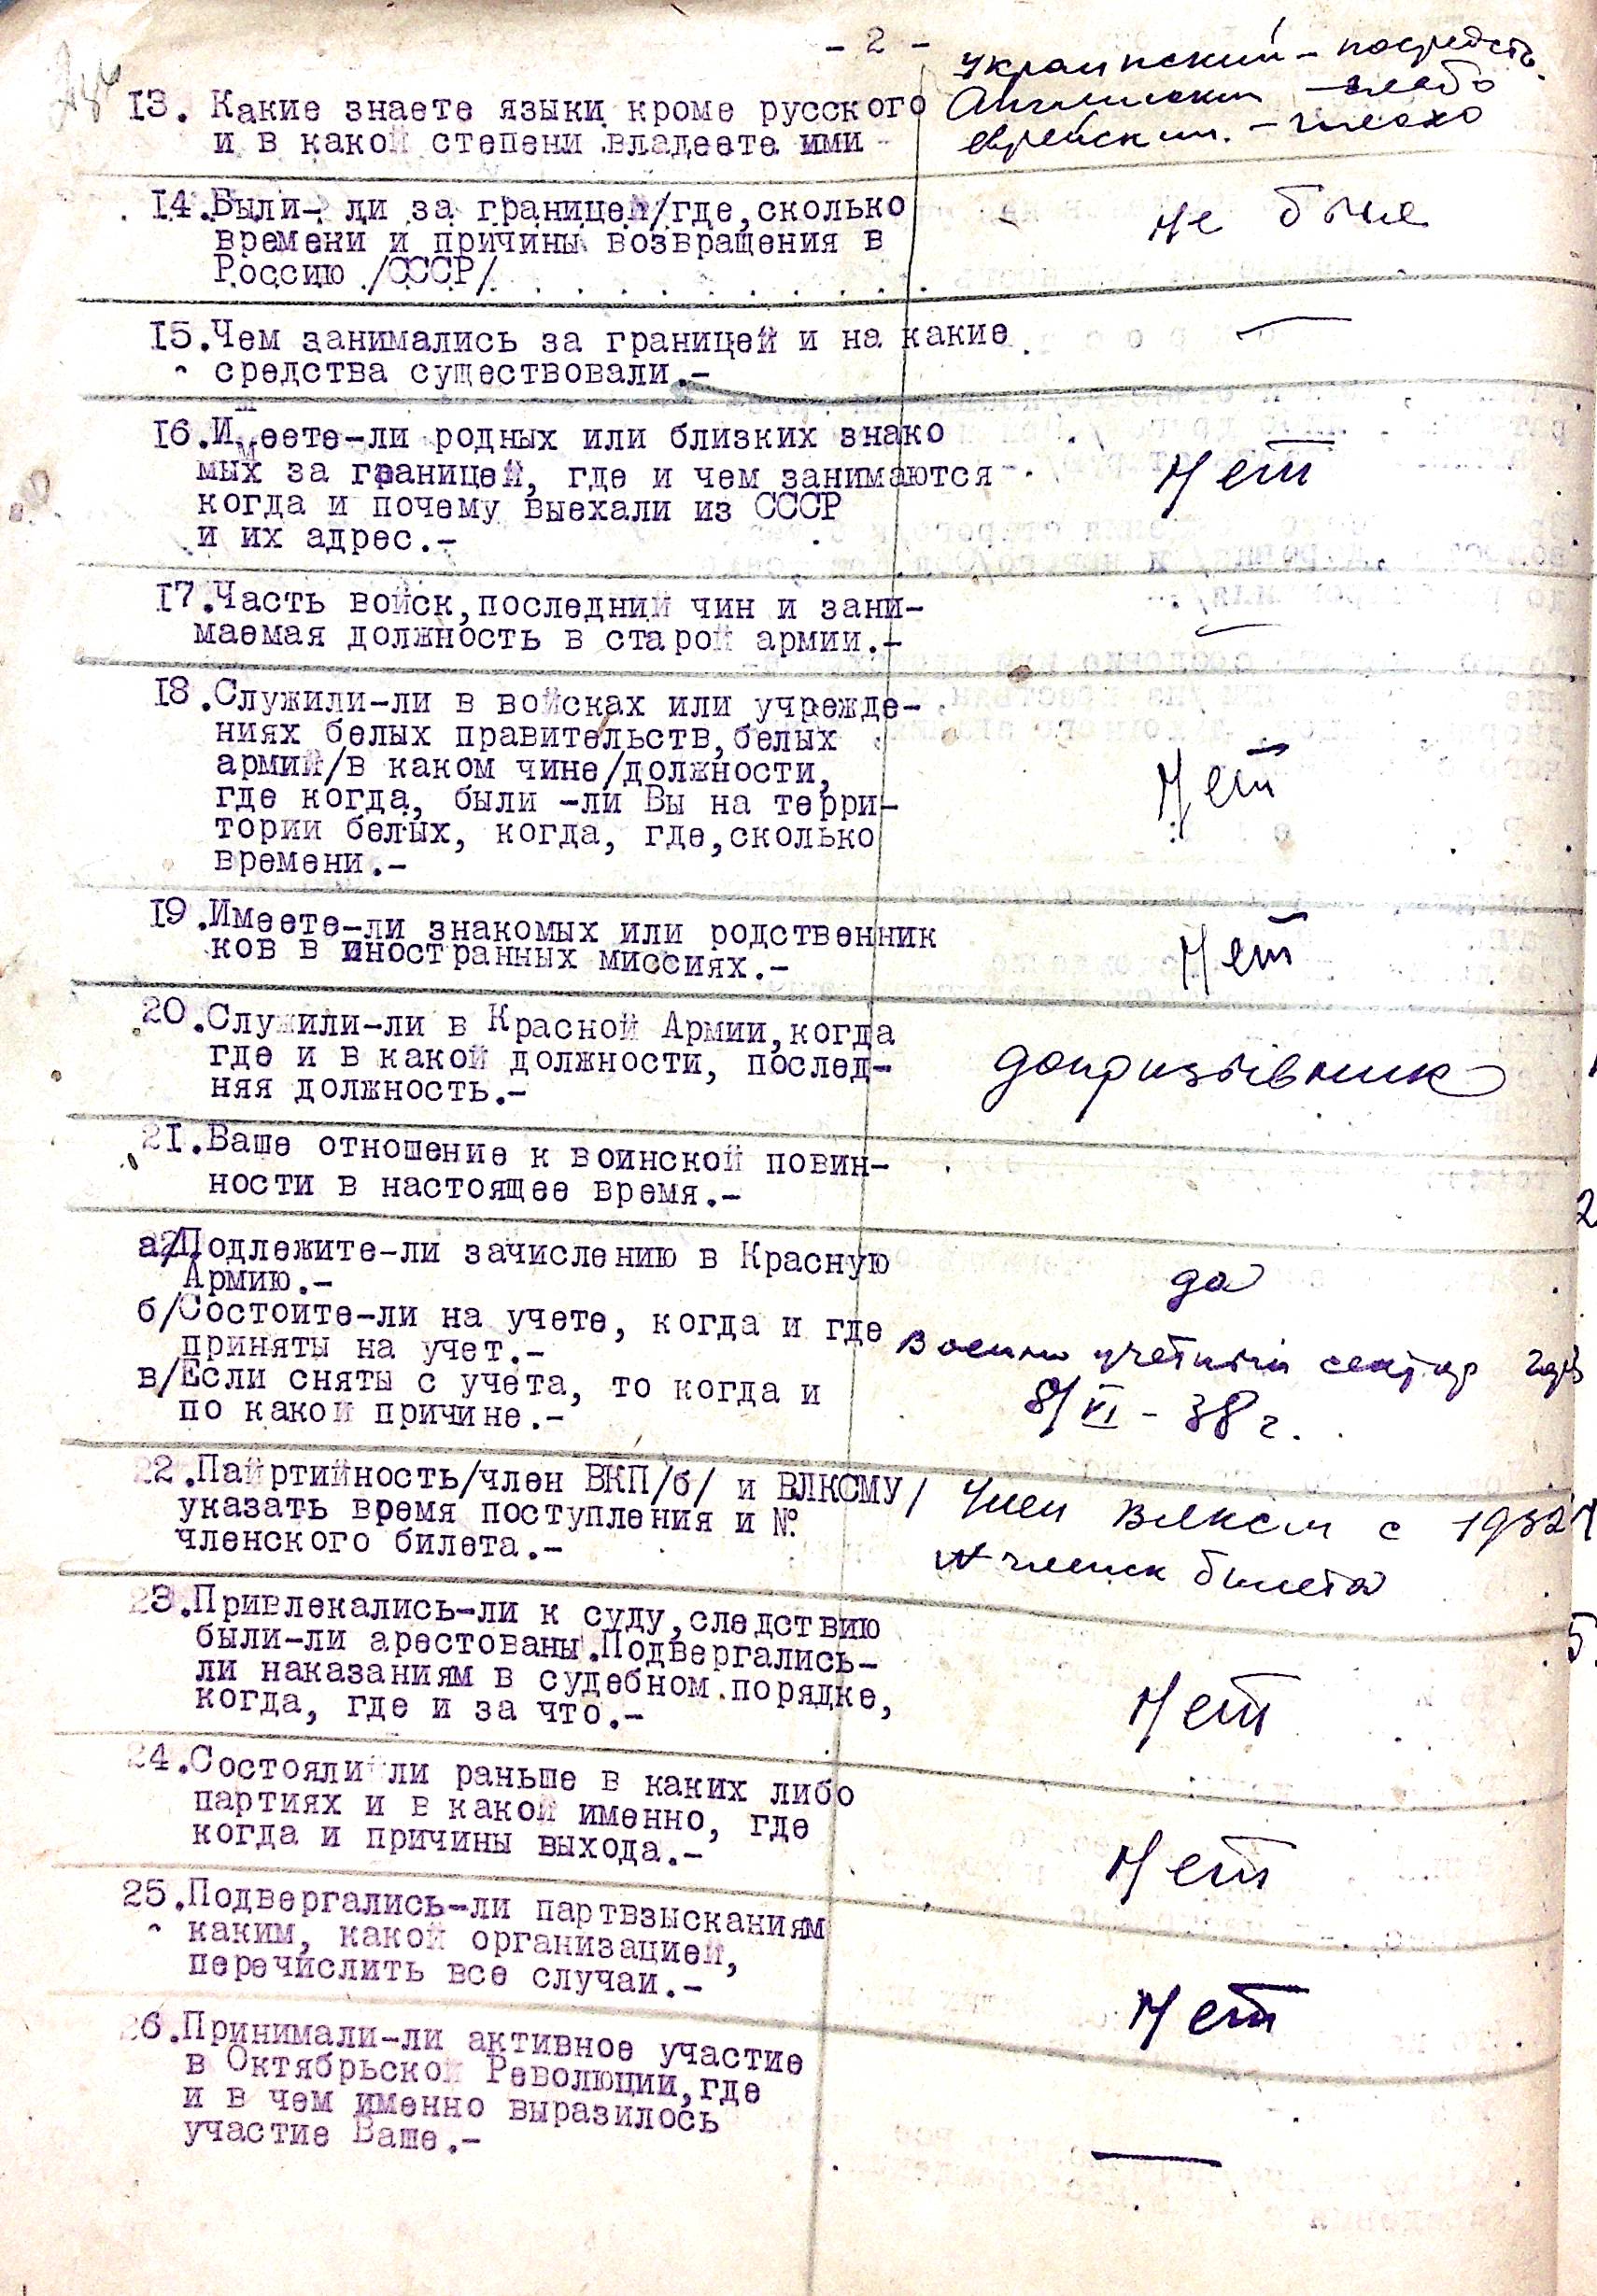 - 2 -
Украинский - посредств.
13. Какие знаете языки кроме русского Английский - слабо
и в какой степени владеете ими - еврейский. - плохо
14. Были- ли за границей/где,сколько
времени и причины возвращения в
Россию /СССР/. . . . . . . . . . . .
не был
15.Чем занимались за границей и на какие
средства существовали.-
—
16.Имеете-ли родных или близких знако
мых за границей, где и чем занимаются
когда и почему выехали из СССР
и их адрес.-
Нет
17.Часть войск,последний чин и зани-
маемая должность в старой армии.-
—
18.Служили-ли в войсках или учрежде-
ниях белых правительств,белых
армий/в каком чине/должности,
где когда, были -ли Вы на терри-
тории белых, когда, где,сколько
времени.-
Нет
19.Имеете-ли знакомых или родственник
ков в иностранных миссиях.-
Нет
20.Служили-ли в Красной Армии,когда
где и в какой должности, послед-
няя должность.-
допризывник
21.Ваше отношение к воинской повин-
ности в настоящее время.-
2
а/Подлежите-ли зачислению в Красную
Армию.-
да
б/Состоите-ли на учете, когда и где
приняты на учет.-
Военно учетный сектор
в/Если сняты с учета, то когда и
по какой причине.-
8/VI - 38 г.
22.Пайртийность/член ВКП/б/ и ВЛКСМУ/
указать время поступления и №.
членского билета.-
Член ВЛКСМ с 1932
№ членск билета
23.Привлекались-ли к суду,следствию
были-ли арестованы.Подвергались-
ли наказаниям в судебном.порядке,
когда, где и за что.-
5
Нет
24.Состояли ли раньше в каких либо
партиях и в какой именно, где
когда и причины выхода.-
Нет
25.Подвергались-ли партвзысканиям
каким, какой организацией,
перечислить все случаи.-
Нет
26.Принимали-ли активное участие
в Октябрьской Революции,где
и в чем именно выразилось
участие Ваше.-
—